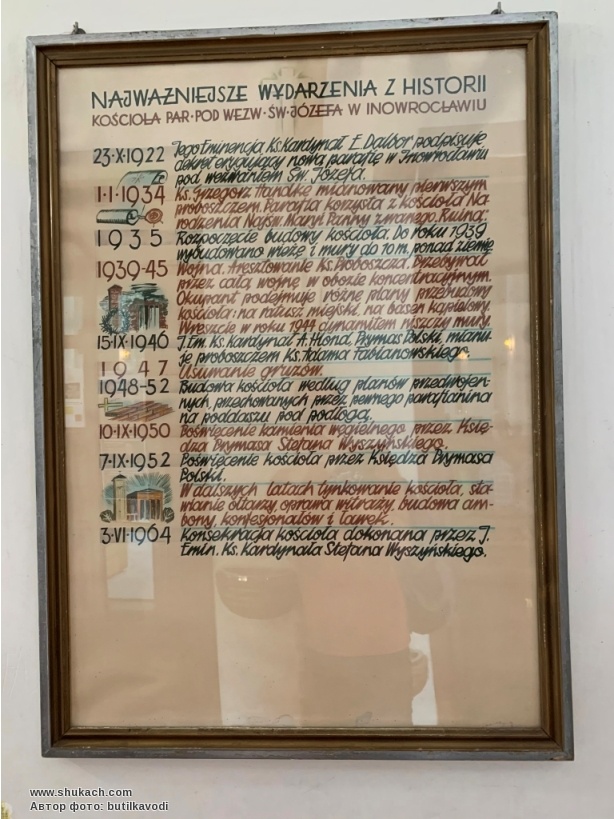 NAJWAŻNIEJSZE WYDARZENIA Z HISTORII
KOŚCIOŁA PAR·POD WEZW·ŚW·JÓZEFA W INOWROCŁAWIU
23·X·1922 Jego Eminencja Ks. Kardynał E. Dalbor podpisuje
dekret erygujący nową parafię w Inowrocławiu
pod wezwaniem Św. Józefa.
1·I·1934 Ks. Grzegorz Handke mianowany pierwszym
proboszczem. Parafia korzysta z kościoła Na-
rodzenia Najśw. Maryi Panny zwanego „Ruina".
1935 Rozpoczęcie budowy kościoła. Do roku 1939
wybudowano wieżę i mury do 10 m. ponad ziemię
1939-45 Wojna. Aresztowanie Ks. Proboszcza. Przebywał
przez całą wojnę w obozie koncentracyjnym.
Okupant podejmuje różne plany przebudowy
kościoła: na ratusz miejski, na basen kąpielowy.
Wreszcie w roku 1944 dynamitem niszczy mury.
15·IX·1946 J. Em. Ks. kardynał A. Hlond, Prymas Polski, mianu-
je proboszczem Ks. Adama Fabianowskiego.
1947 Usuwanie gruzów.
1948-52 Budowa kościoła według planów przedwojen-
nych, przechowanych przez pewnego parafianina
na poddaszu pod podłogą.
10·IX·1950 Poświęcenie kamienia węgielnego przez Księ-
dza Prymasa Stefana Wyszyńskiego.
7·IX·1952 Poświęcenie kościoła przez Księdza Prymasa
Polski.
W dalszych latach tynkowanie kościoła, sta-
wianie ołtarzy, oprawa witraży, budowa am-
bony, konfesjonałów i ławek.
3·VI·1964 Konsekracja kościoła dokonana przez J.
Emin. Ks. Kardynała Stefana Wyszyńskiego.
www.shukach.com
Автор фото: butilkavodi